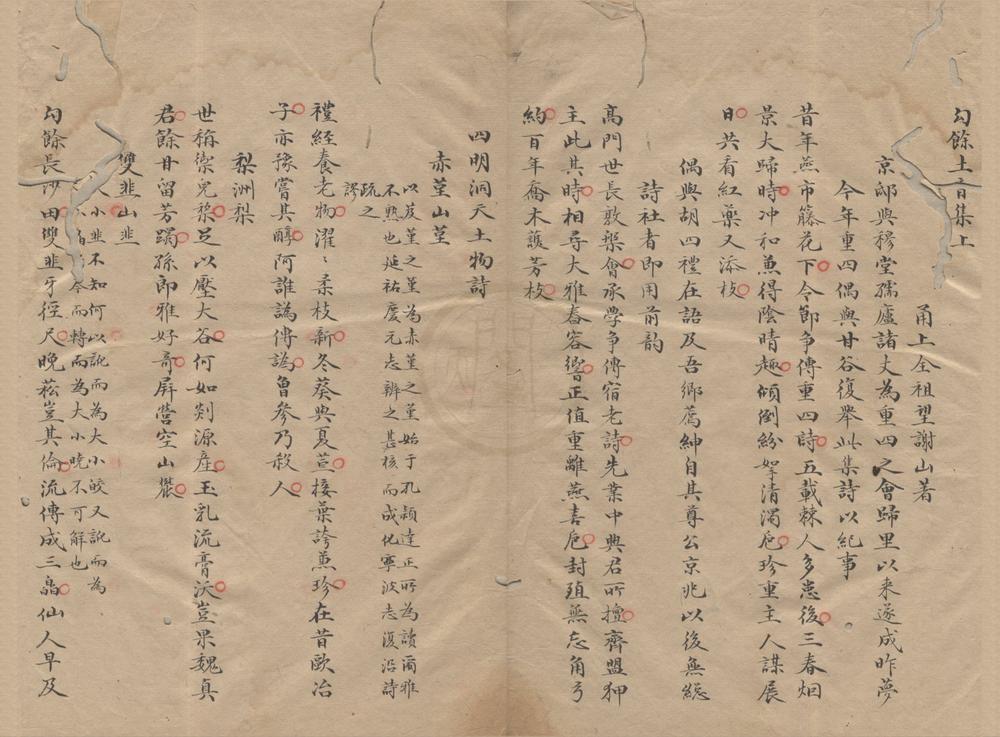 勾餘土音集上
甬上全祖望謝山著
京邸與穆堂孺廬諸丈為重四之會歸里以来遂成昨夢
今年重四偶與甘谷復舉此集詩以紀事
昔年燕市籐花下令節争傳重四時五載棘人多恙後三春烟
景大歸時冲和兼得陰晴趣傾倒紛挐清濁卮珍重主人謀展
日共看紅藥又添枝
偶與胡四禮在語及吾鄉薦紳自其尊公京兆以後無総
詩社者即用前韵
髙門世長敦槃會承學争傳宿老詩先業中興君所擅齊盟狎
主此其時相尋大雅舂容響正值重離燕喜卮封殖無忘角弓
約百年喬木護芳枝
四明洞天土物詩
赤堇山堇
以芨堇之堇為赤堇之堇始于孔穎達正所為讀爾雅
不熟也延祐慶元志辨之甚核而成化寧波志復沿詩
疏之
謬
禮經養老物瀡〻柔枝新冬葵與夏荁接葉誇兼珍在昔歐冶
子亦豫嘗其醇阿誰譌傳譌魯參乃殺人
梨洲梨
世稱禦兒棃足以壓大谷何如剡源産玉乳流膏沃豈果魏真
君餘甘留芳躅孫即雅好竒屛營空山麓
雙韭山韭
大小韭不知何以訛而為大小皎又訛而為
而轉而為大小曉不可解也
勾餘長沙田雙韭牙徑尺晚菘豈其倫流傳成三畠仙人早及